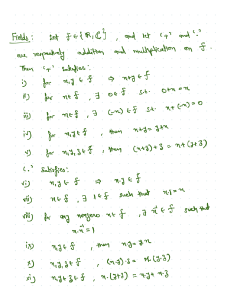 Fields: Let F ∈ {ℝ, ℂ}, and let '+' and '·'
are respectively addition and multiplication on F.
Then '+' satisfies:
i) for x,y ∈ F ⇒ x+y ∈ F
ii) for x ∈ F, ∃ 0 ∈ F s.t. 0+x = x
iii) for x ∈ F, ∃ (-x) ∈ F s.t. x+(-x) = 0
iv) for x,y ∈ F, then x+y = y+x
v) for x,y,z ∈ F, then (x+y)+z = x+(y+z)
'·' satisfies:
vi) x,y ∈ F ⇒ x·y ∈ F
vii) x ∈ F, ∃ 1 ∈ F such that x·1 = x
viii) for any nonzero x ∈ F, ∃ x⁻¹ ∈ F such that
x·x⁻¹ = 1
ix) x,y ∈ F, then x·y = y·x
x) x,y,z ∈ F, (x·y)·z = x·(y·z)
xi) x,y,z ∈ F, x·(y+z) = x·y + x·z